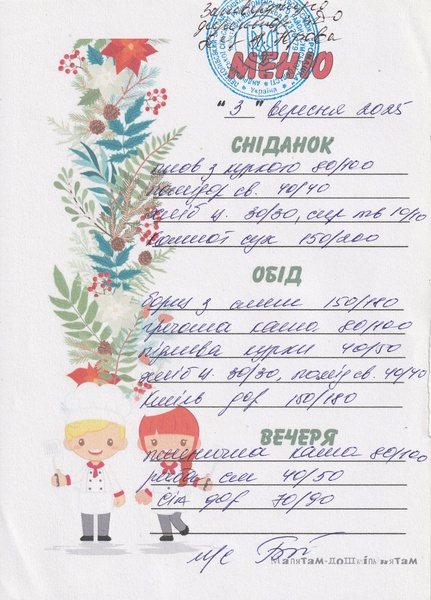 Затверджую
МЕНЮ
"3" вересня 2025
СНІДАНОК
плов з куркою 80/100
помідор св. 40/40
хліб ц. 30/30, сир тв 10/10
компот сух 150/200
ОБІД
борщ з см 150/180
гречана каша 80/100
курки 40/50
хліб ц. 30/30, помід св. 40/40
Кисіль 150/180
ВЕЧЕРЯ
пшенична каша 80/100
риба см 40/50
сік 70/90
м/с
Малятам-дошкільнятам